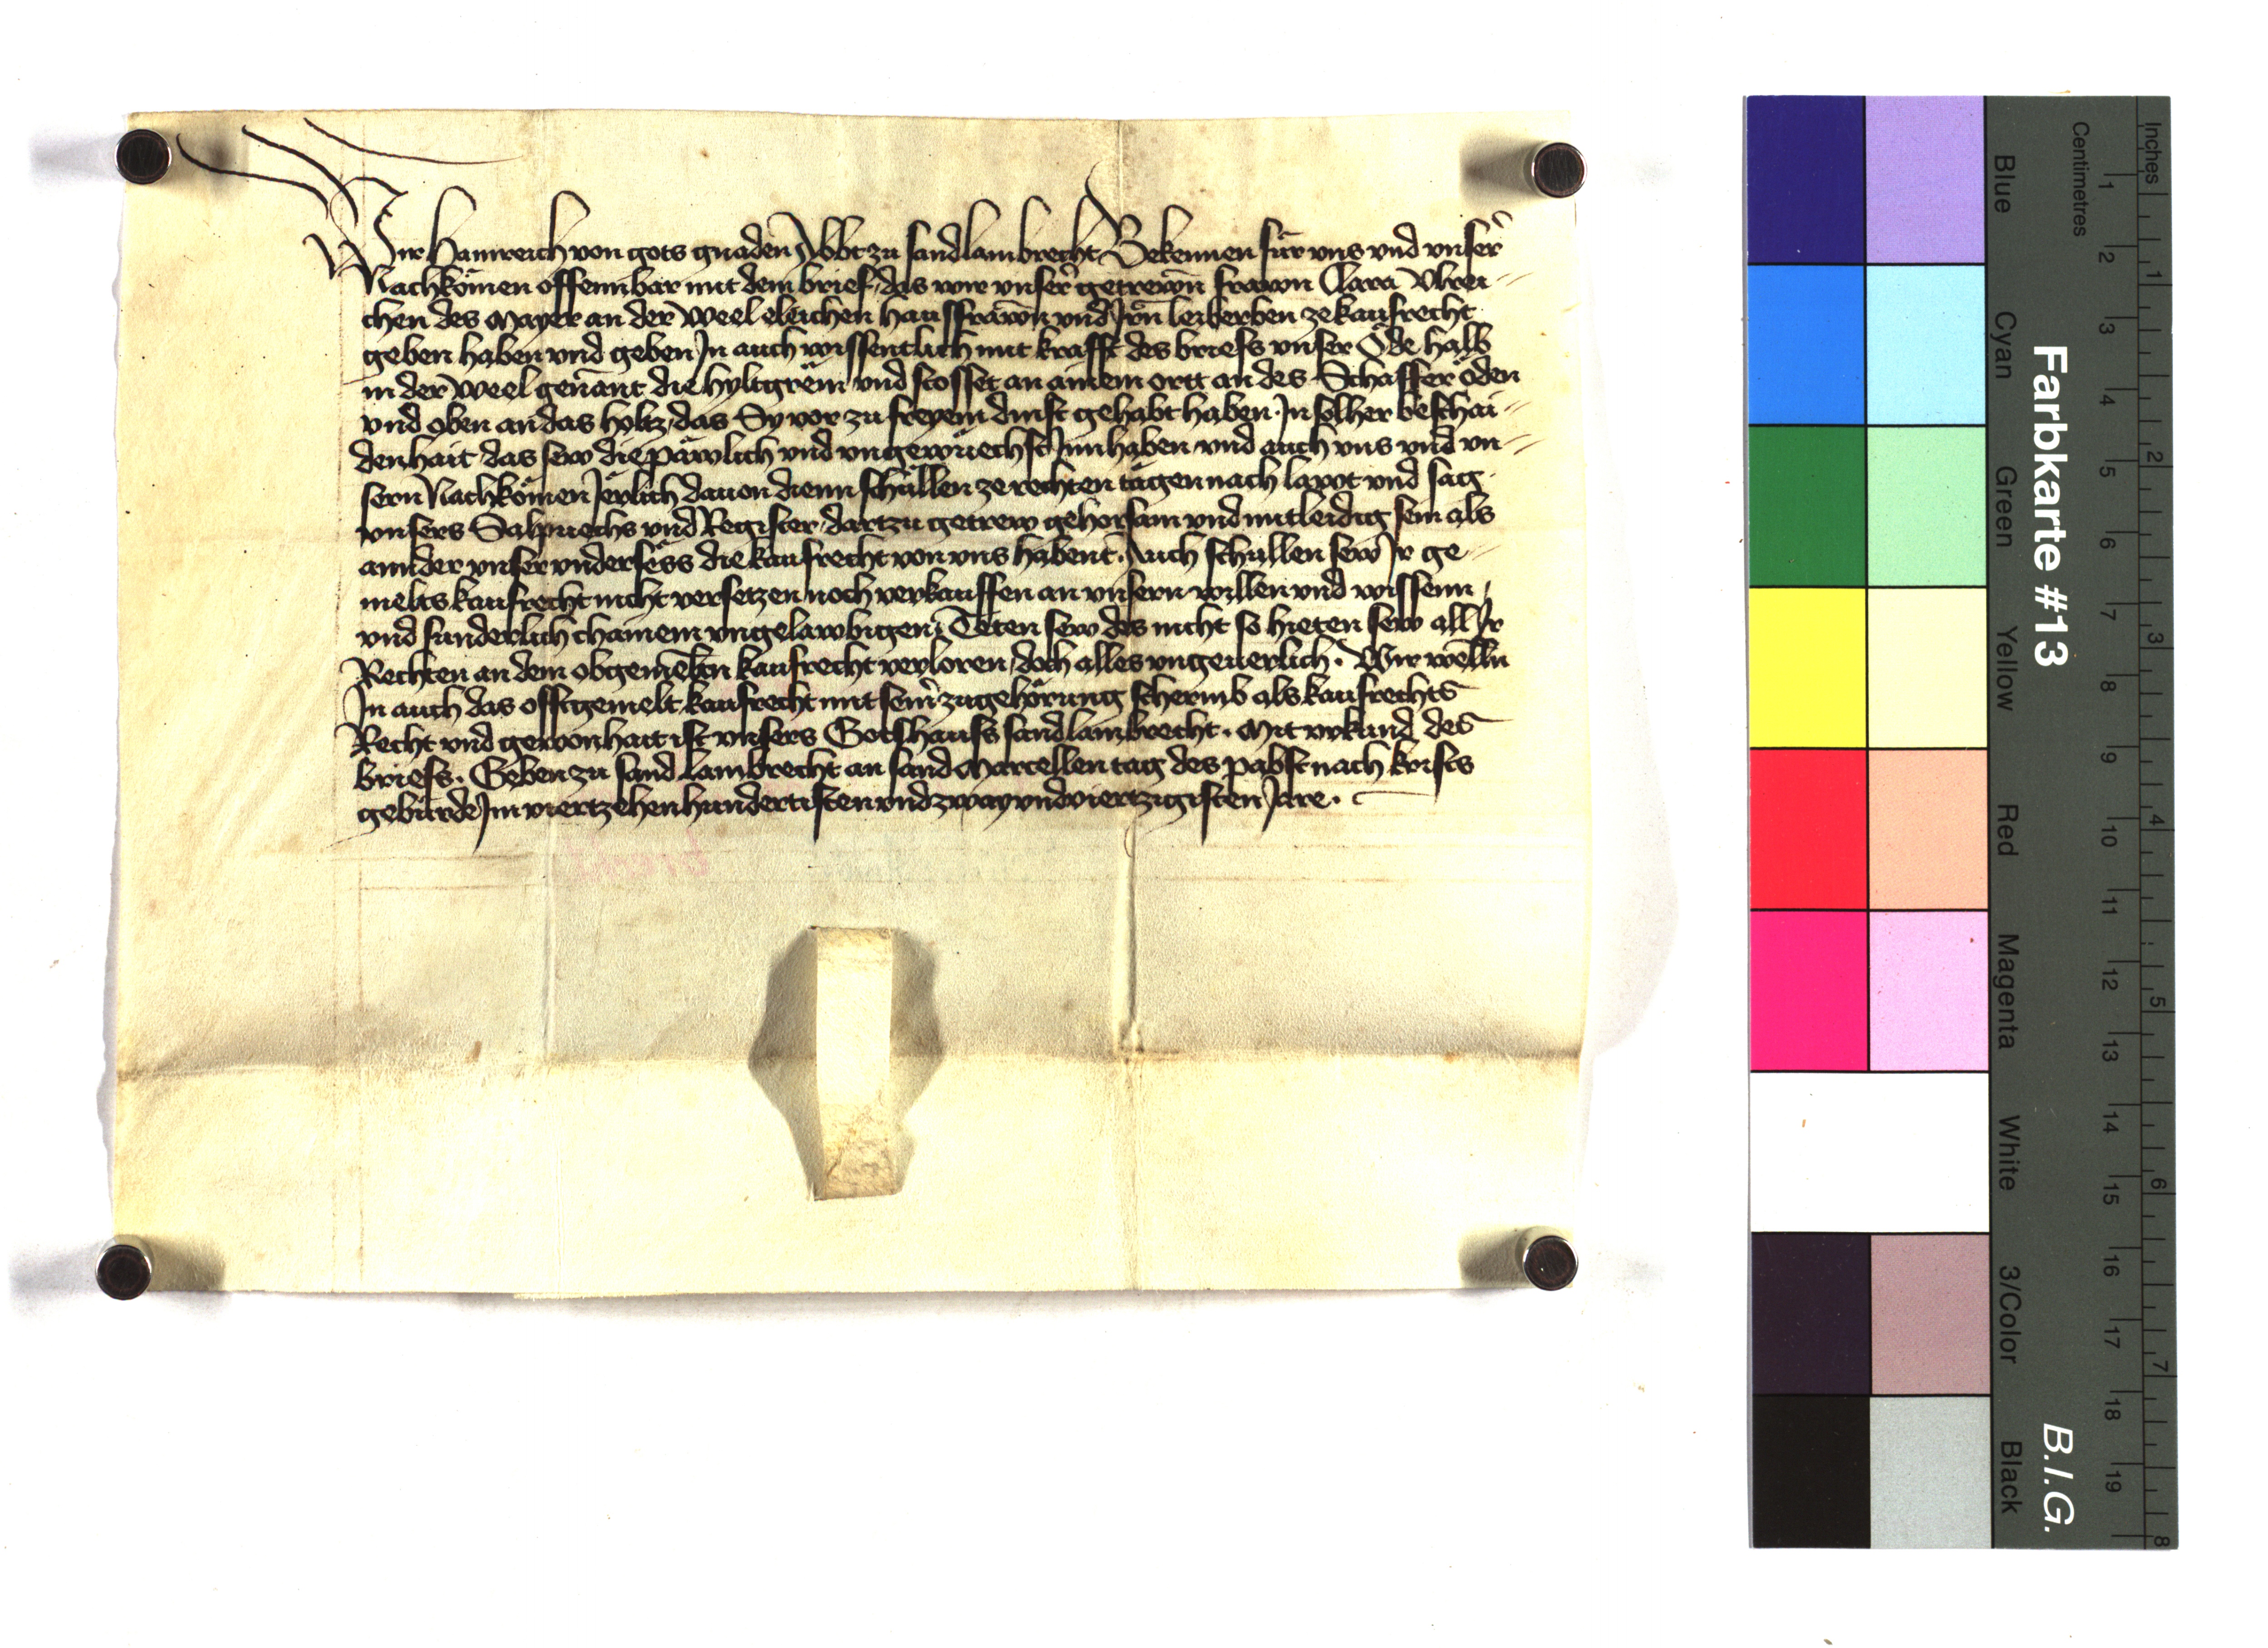 Wir Hainreich von gots gnaden Abbt zu sand lambrecht Bekennen für vns vnd vnser
Nachkömen offennbar mit dem brief, das wir vnser getrewn frawn Clara Vlrei-
chen des Mayer an der Weel eleichen hausfrawn vnd Irn leiberben ze kaufrecht
geben haben vnd geben In auch wissentlich mit krafft des briefs vnser Öde halb
in der Weel genant die hyltgrëm vnd stosset an ainem ortt an des Schaffer öden
vnd oben an das holtz, das Sy vor zu freyem dinst gehabt haben. In solher beschai-
denhait das sew die päwlich vnd vngewüechst Innhaben vnd auch vns vnd vn-
sern Nachkömen Jërlich dauon dienn schüllen ze rechten tägen nach lawt vnd sag
vnsers Salpuechs vnd Register, dartzu getrew gehorsam vnd mitleidig sein als
annder vnser vndersëss die kaufrecht von vns habent. Auch schullen sew Ir ge-
melts kaufrecht nicht versetzen noch verkauffen an vnsern willen vnd wissenn,
vnd sunderlich chainem vngelawbigen, Teten sew des nicht so hieten sew all Ir
Rechten an dem obgemelten kaufrecht verloren, doch alles vngeuerlich. Wir wëlln
In auch das offtgemelt kaufrecht mit seiner zugehörung schermb als kaufrechts
Recht vnd gewonhait ist vnsers Gotshauss sand lambrecht. Mit vrkund des
briefs. Geben zu sand Lambrecht an sand Marcellen tag des pabst nach krists
gebürde Im viertzehenhundertisten vnd zway vnd viertzigisten Jare.
Farbkarte #13
B.I.G.
Inches
Centimetres
1 2 3 4 5 6 7 8 9 10 11 12 13 14 15 16 17 18 19
1 2 3 4 5 6 7 8
Blue
Cyan
Green
Yellow
Red
Magenta
White
3/Color
Black